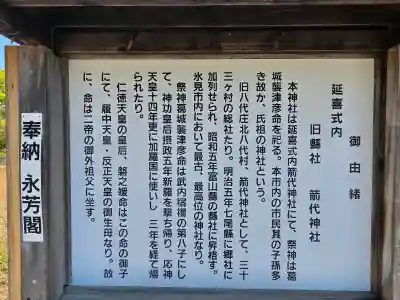 御由緒
延喜式内
旧縣社 箭代神社
本神社は延喜式内箭代神社にて、祭神は葛
城襲津彦命を祀る。本市内の市民其の子孫多
き故か、氏祖の神社という。
旧八代庄北八代村、箭代神社として、三十
三ヶ村の総社たり。明治五年七尾縣に郷社に
加列せられ、昭和五年富山縣の縣社に昇格す。
氷見市内において最古、最高位の神社なり。
祭神葛城襲津彦命は武内宿禰の第八子にし
て、神功皇后摂政五年新羅を撃ち帰り、応神
天皇十四年更に加羅國に使いし、三年を経て帰
られたり。
仁徳天皇の皇后、磐之媛命はこの命の御子
にて、履中天皇・反正天皇の御生母なり。故
に、命は二帝の御外祖父に坐す。
奉納 永芳閣